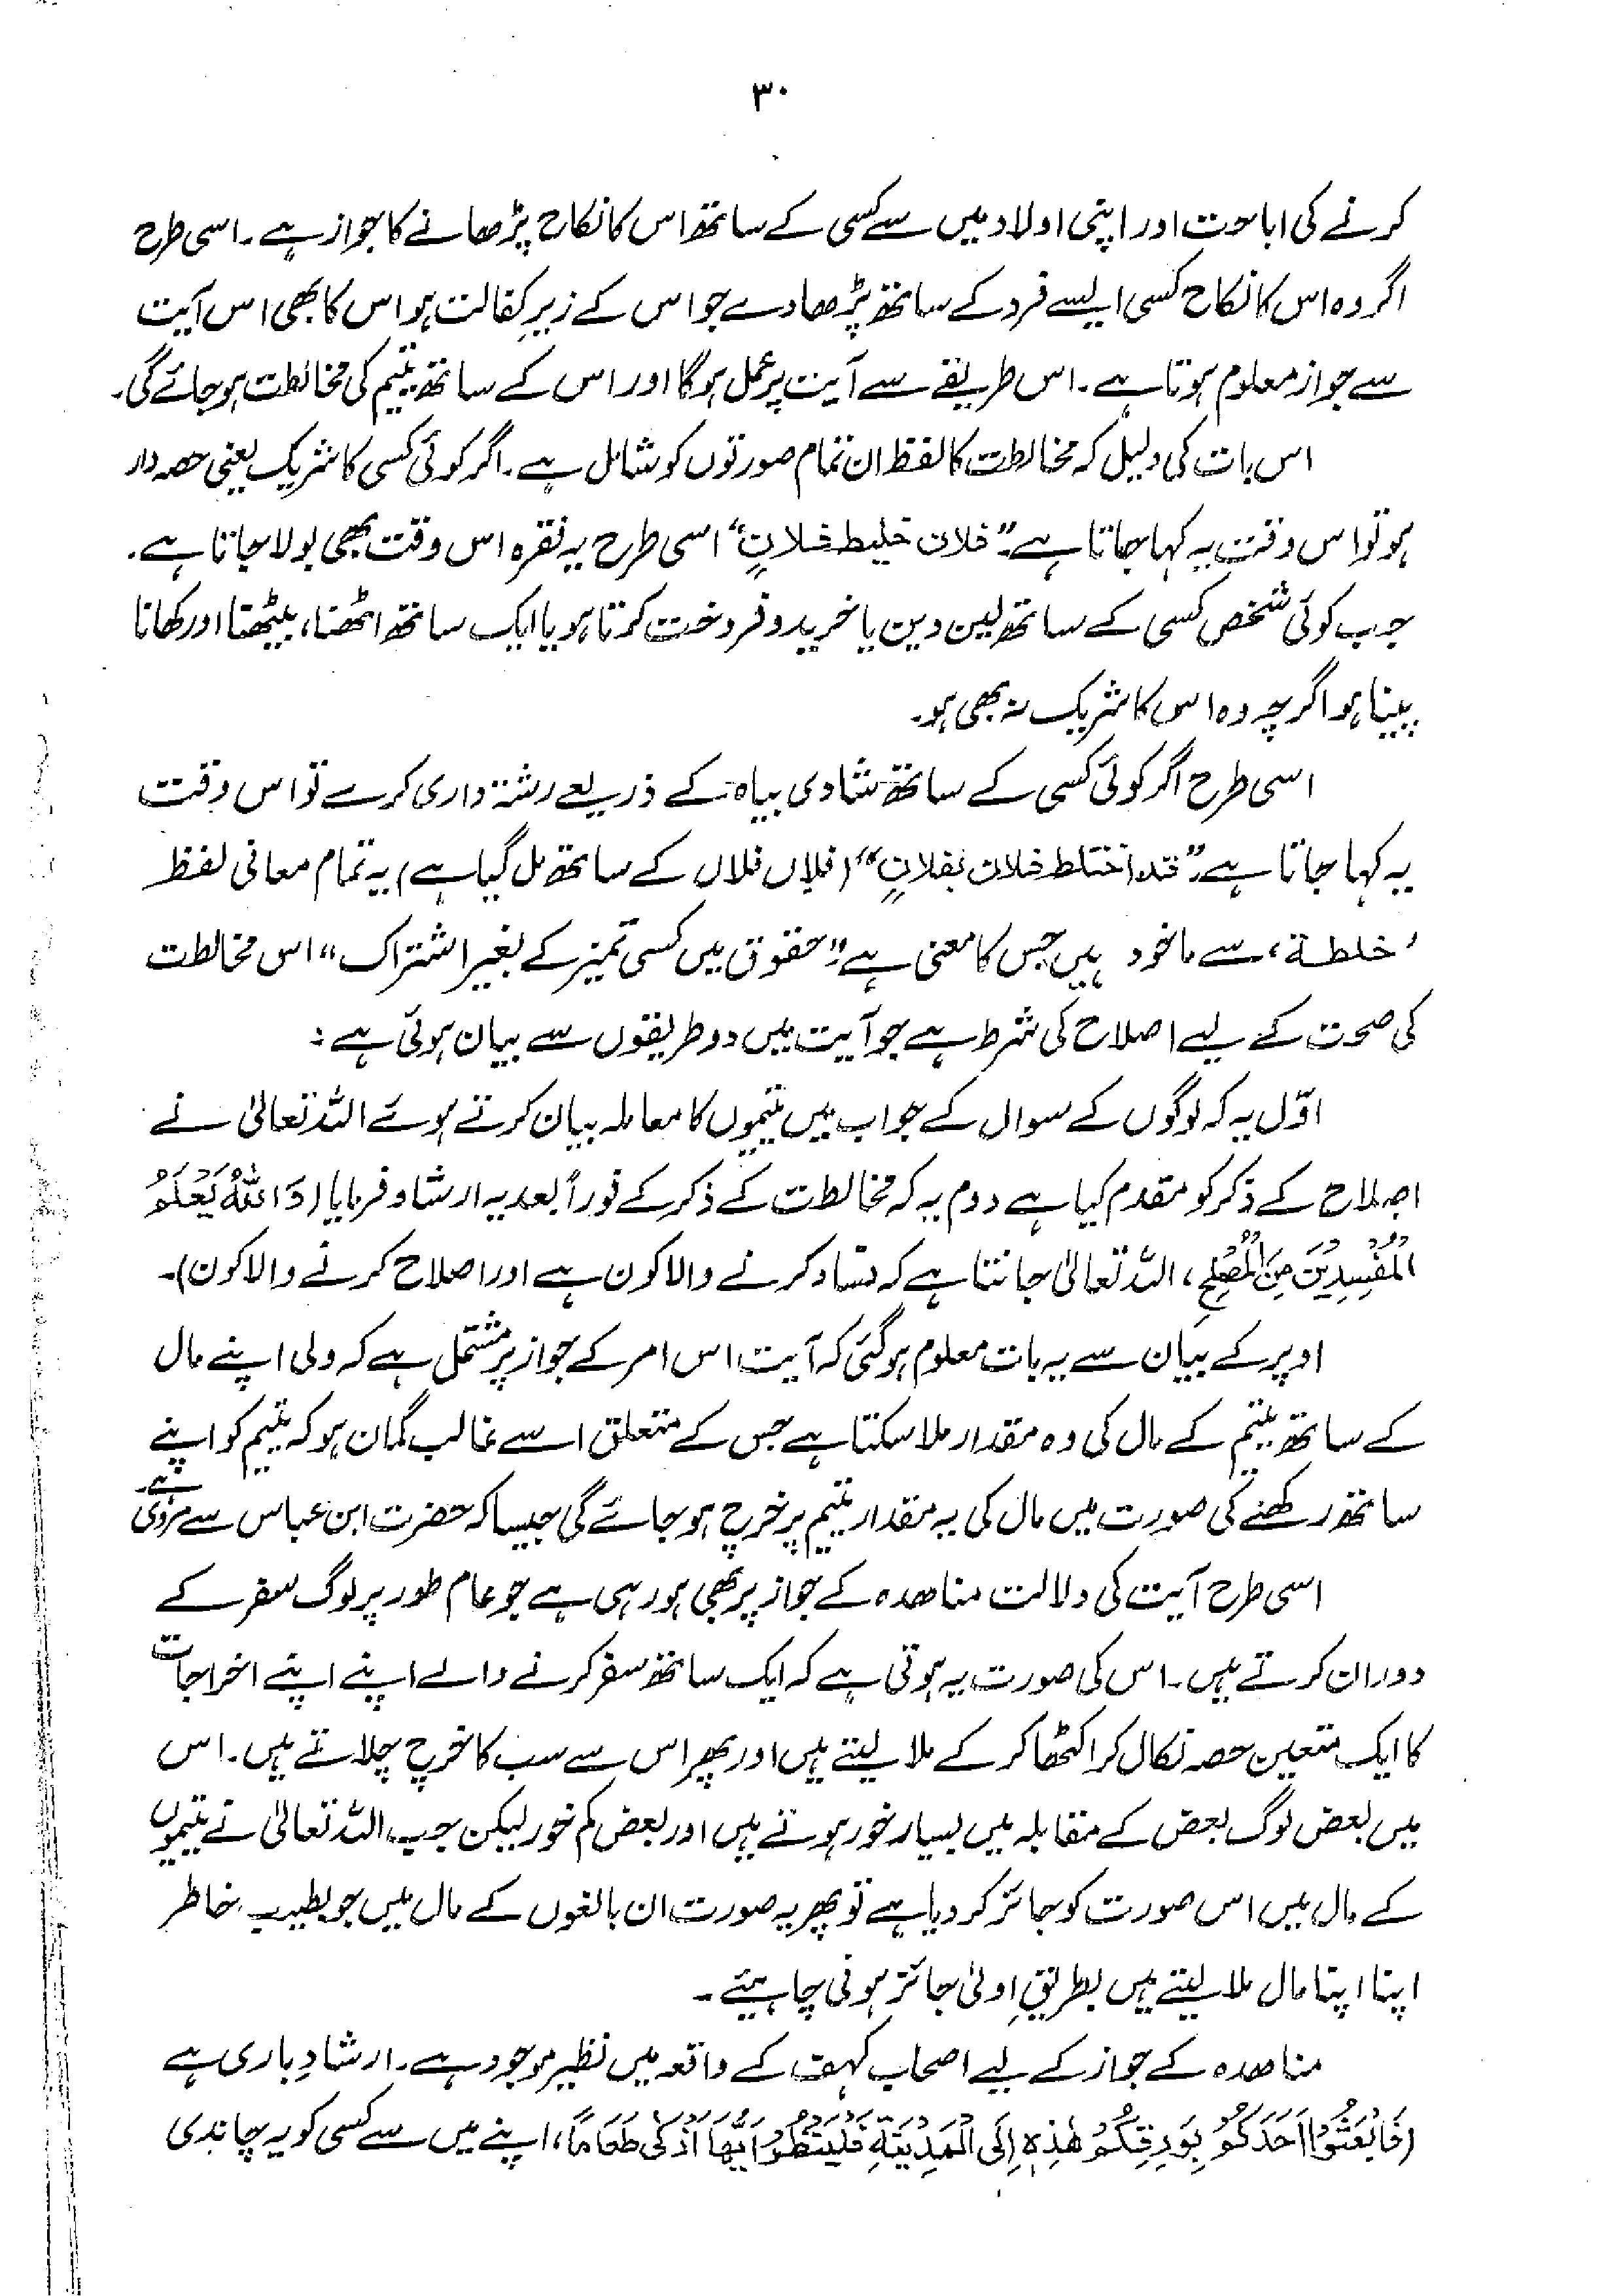 ۳۰
کرنے کی اباحت اور اپنی اولاد میں سے کسی کے ساتھ اس کا نکاح پڑھانے کا جواز ہے۔ اسی طرح
اگر وہ اس کا نکاح کسی ایسے فرد کے ساتھ پڑھا دے جو اس کے زیرِ کفالت ہو اس کا بھی اس آیت
سے جواز معلوم ہوتا ہے۔ اس طریقے سے آیت پر عمل ہوگا اور اس کے ساتھ یتیم کی مخالطت ہو جائے گی۔
اس بات کی دلیل کہ مخالطت کا لفظ ان تمام صورتوں کو شامل ہے۔ اگر کوئی کسی کا شریک یعنی حصہ دار
ہو تو اس وقت یہ کہا جاتا ہے۔ "فلان خلیط فلانٍ" اسی طرح یہ فقرہ اس وقت بھی بولا جاتا ہے۔
جب کوئی شخص کسی کے ساتھ لین دین یا خرید و فروخت کرتا ہو یا ایک ساتھ اٹھتا، بیٹھتا اور کھاتا
پیتا ہو اگرچہ وہ اس کا شریک نہ بھی ہو۔
اسی طرح اگر کوئی کسی کے ساتھ شادی بیاہ کے ذریعے رشتہ داری کرے تو اس وقت
یہ کہا جاتا ہے۔ "قد اختلط فلان بفلانٍ" (فلاں فلاں کے ساتھ مل گیا ہے) یہ تمام معانی لفظ
'خلطة' سے ماخوذ ہیں جس کا معنی ہے "حقوق میں کسی تمیز کے بغیر اشتراک" اس مخالطت
کی صحت کے لیے اصلاح کی شرط ہے جو آیت میں دو طریقوں سے بیان ہوئی ہے :
اوّل یہ کہ لوگوں کے سوال کے جواب میں یتیموں کا معاملہ بیان کرتے ہوئے اللہ تعالیٰ نے
اصلاح کے ذکر کو مقدم کیا ہے دوم یہ کہ مخالطت کے ذکر کے فوراً بعد یہ ارشاد فرمایا (وَاللّٰهُ یَعْلَمُ
الْمُفْسِدِیْنَ مِنَ الْمُصْلِحِ، اللہ تعالیٰ جانتا ہے کہ فساد کرنے والا کون ہے اور اصلاح کرنے والا کون)۔
اوپر کے بیان سے یہ بات معلوم ہوگئی کہ آیت اس امر کے جواز پر مشتمل ہے کہ ولی اپنے مال
کے ساتھ یتیم کے مال کی وہ مقدار ملا سکتا ہے جس کے متعلق اسے غالب گمان ہو کہ یتیم کو اپنے
ساتھ رکھنے کی صورت میں مال کی یہ مقدار یتیم پر خرچ ہو جائے گی جیسا کہ حضرت ابن عباس سے مروی ہے۔
اسی طرح آیت کی دلالت مناھدہ کے جواز پر بھی ہو رہی ہے جو عام طور پر لوگ سفر کے
دوران کرتے ہیں۔ اس کی صورت یہ ہوتی ہے کہ ایک ساتھ سفر کرنے والے اپنے اپنے اخراجات
کا ایک متعین حصہ نکال کر اکٹھا کر کے ملا لیتے ہیں اور پھر اس سے سب کا خرچ چلاتے ہیں۔ اس
میں بعض لوگ بعض کے مقابلہ میں بسیار خور ہوتے ہیں اور بعض کم خور لیکن جب اللہ تعالیٰ نے یتیموں
کے مال میں اس صورت کو جائز کر دیا ہے تو پھر یہ صورت ان بالغوں کے مال میں جو بطیب خاطر
اپنا اپنا مال ملا لیتے ہیں بطریقِ اولیٰ جائز ہونی چاہیئے۔
مناھدہ کے جواز کے لیے اصحاب کہف کے واقعہ میں نظیر موجود ہے۔ ارشادِ باری ہے
(فَابْعَثُوْا اَحَدَکُمْ بِوَرِقِکُمْ هٰذِهٖ اِلَی الْمَدِیْنَةِ فَلْیَنْظُرْ اَیُّهَا اَزْکٰی طَعَامًا، اپنے میں سے کسی کو یہ چاندی